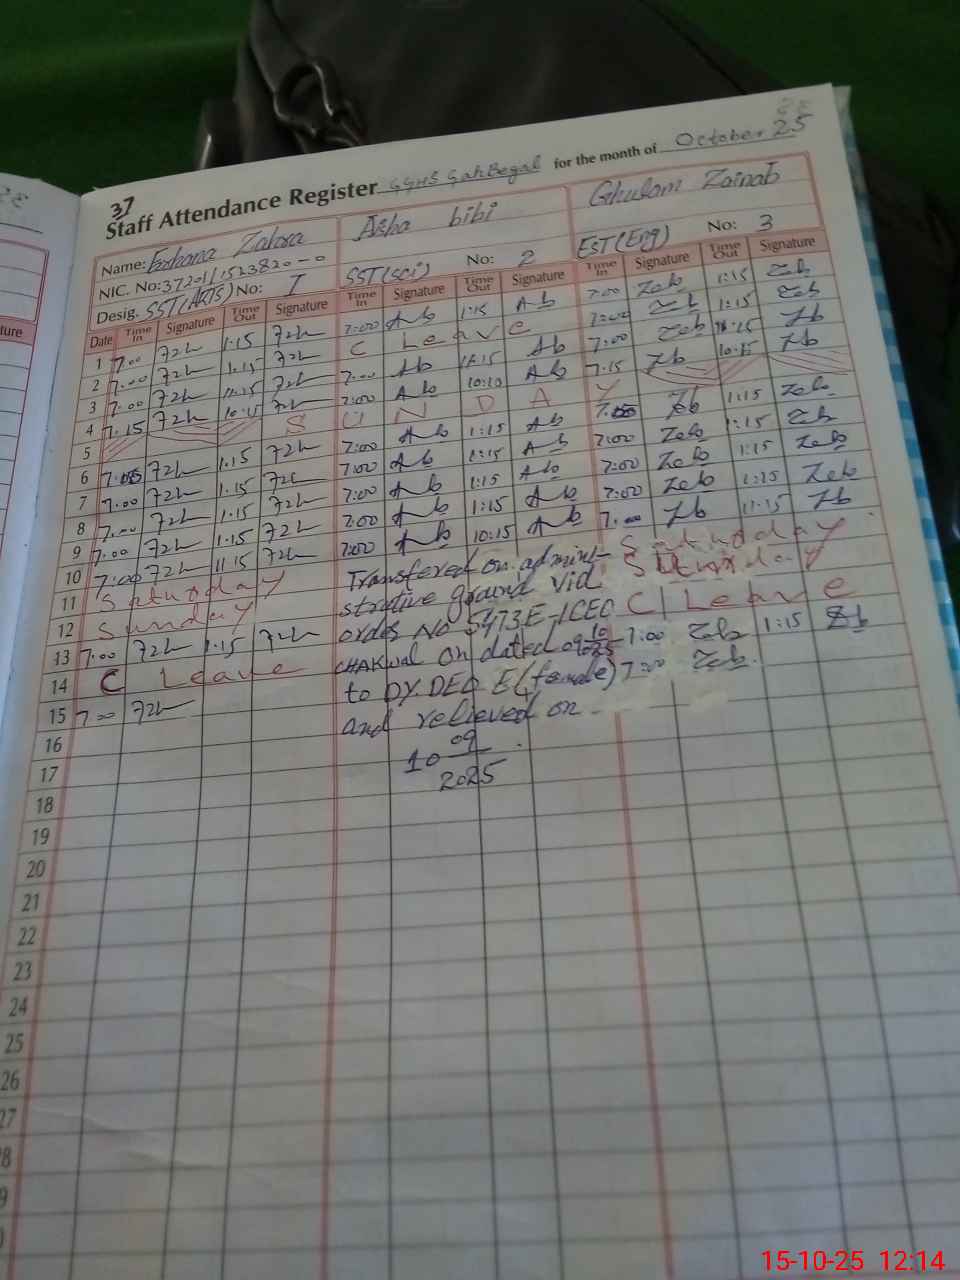 37
Staff Attendance Register GGHS Gah Begal for the month of October 25
Name: Farhana Zahra Aisha bibi Ghulam Zainab
NIC. No: 37201/1523820-0
Desig. SST(ARTS) No: 1 SST(sci) No: 2 EST(Eng) No: 3
Date Time In Signature Time Out Signature Time In Signature Time Out Signature Time In Signature Time Out Signature
1 7:00 1:15 7:00 Ab 1:15 Ab 7:00 Zeb 1:15 Zeb
2 7:00 1:15 C Leave 7:00 Zeb 1:15 Zeb
3 7:00 11:15 7:00 Ab 11:15 Ab 7:00 Zeb Zb
4 7:15 10:15 7:00 Ab 10:10 Ab 7:15 Zb 10:15 Zb
5 S U N D A Y
6 1:15 7:00 Ab 1:15 Ab Zb 1:15 Zeb
7 7:00 1:15 7:00 Ab 1:15 Ab 7:00 Zeb 1:15 Zeb
8 7:00 1:15 7:00 Ab 1:15 Ab 7:00 Zeb 1:15 Zeb
9 7:00 1:15 7:00 Ab 1:15 Ab 7:00 Zeb 1:15 Zeb
10 7:00 11:15 7:00 Ab 10:15 Ab 7:00 Zb 11:15 Zb
11 Saturday Transfered on admini- Saturday
12 Sunday strative ground vid Sunday
13 7:00 1:15 order No 5473E-1CEO C Leave
14 C Leave CHAKwal on dated 09 10 2025 7:00 Zeb 1:15 Zb
15 7:00 to DY. DEO E(female) 7:00 Zeb.
16 and relieved on
17 10 09
18 2025
19
20
21
22
23
24
25
26
27
15-10-25 12:14